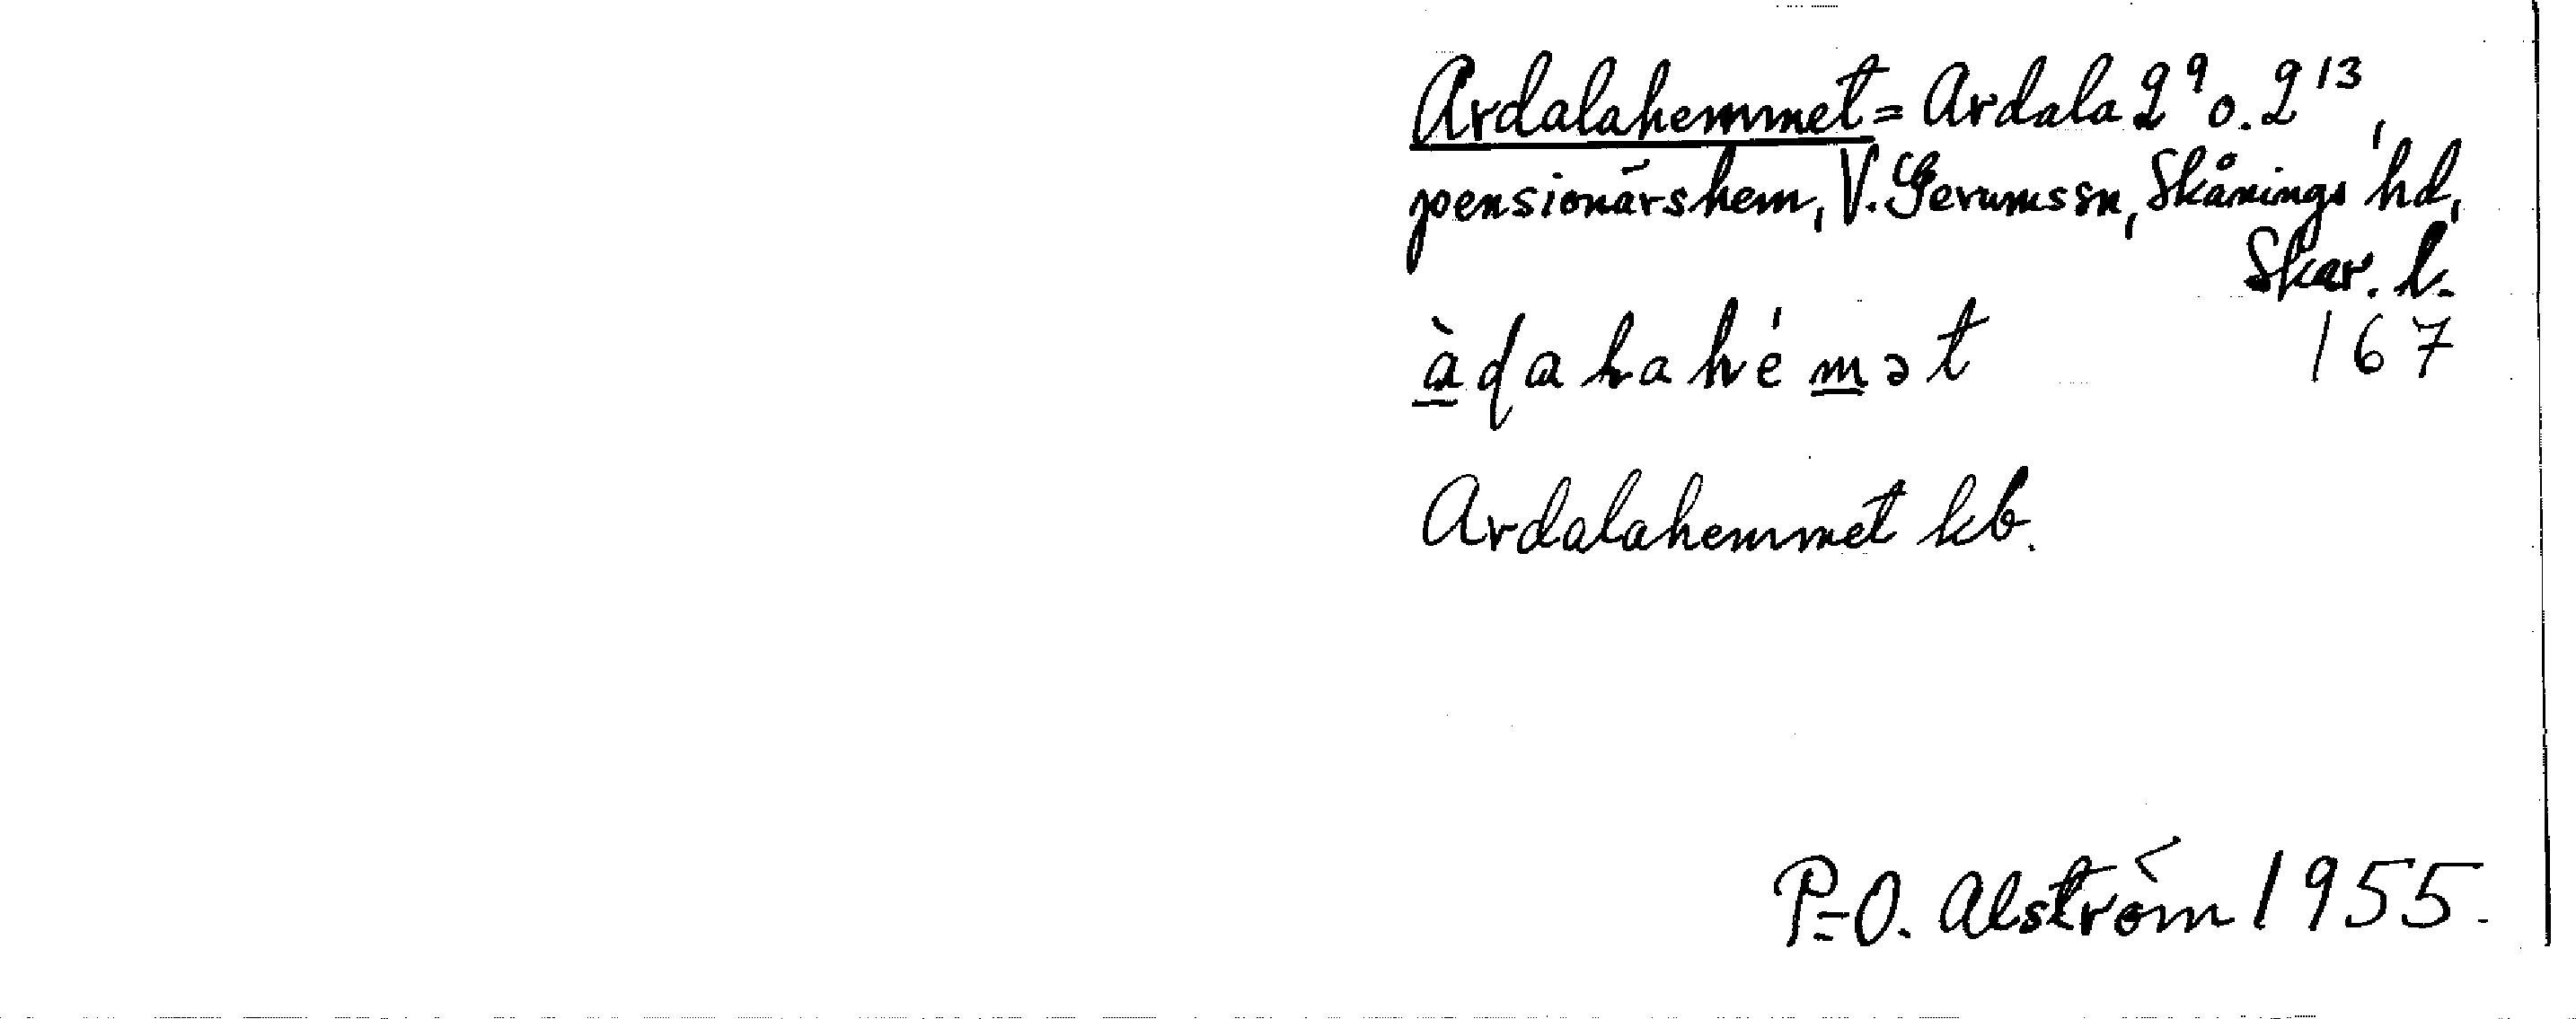 Ardalahemmet = Ardala 2⁹ o. 2¹³,
pensionärshem, V. Gerumssn, Skånings hd,
Skar. l.
167
àɖaɦahémət
Ardalahemmet kb.
P-O. Alström 1955.